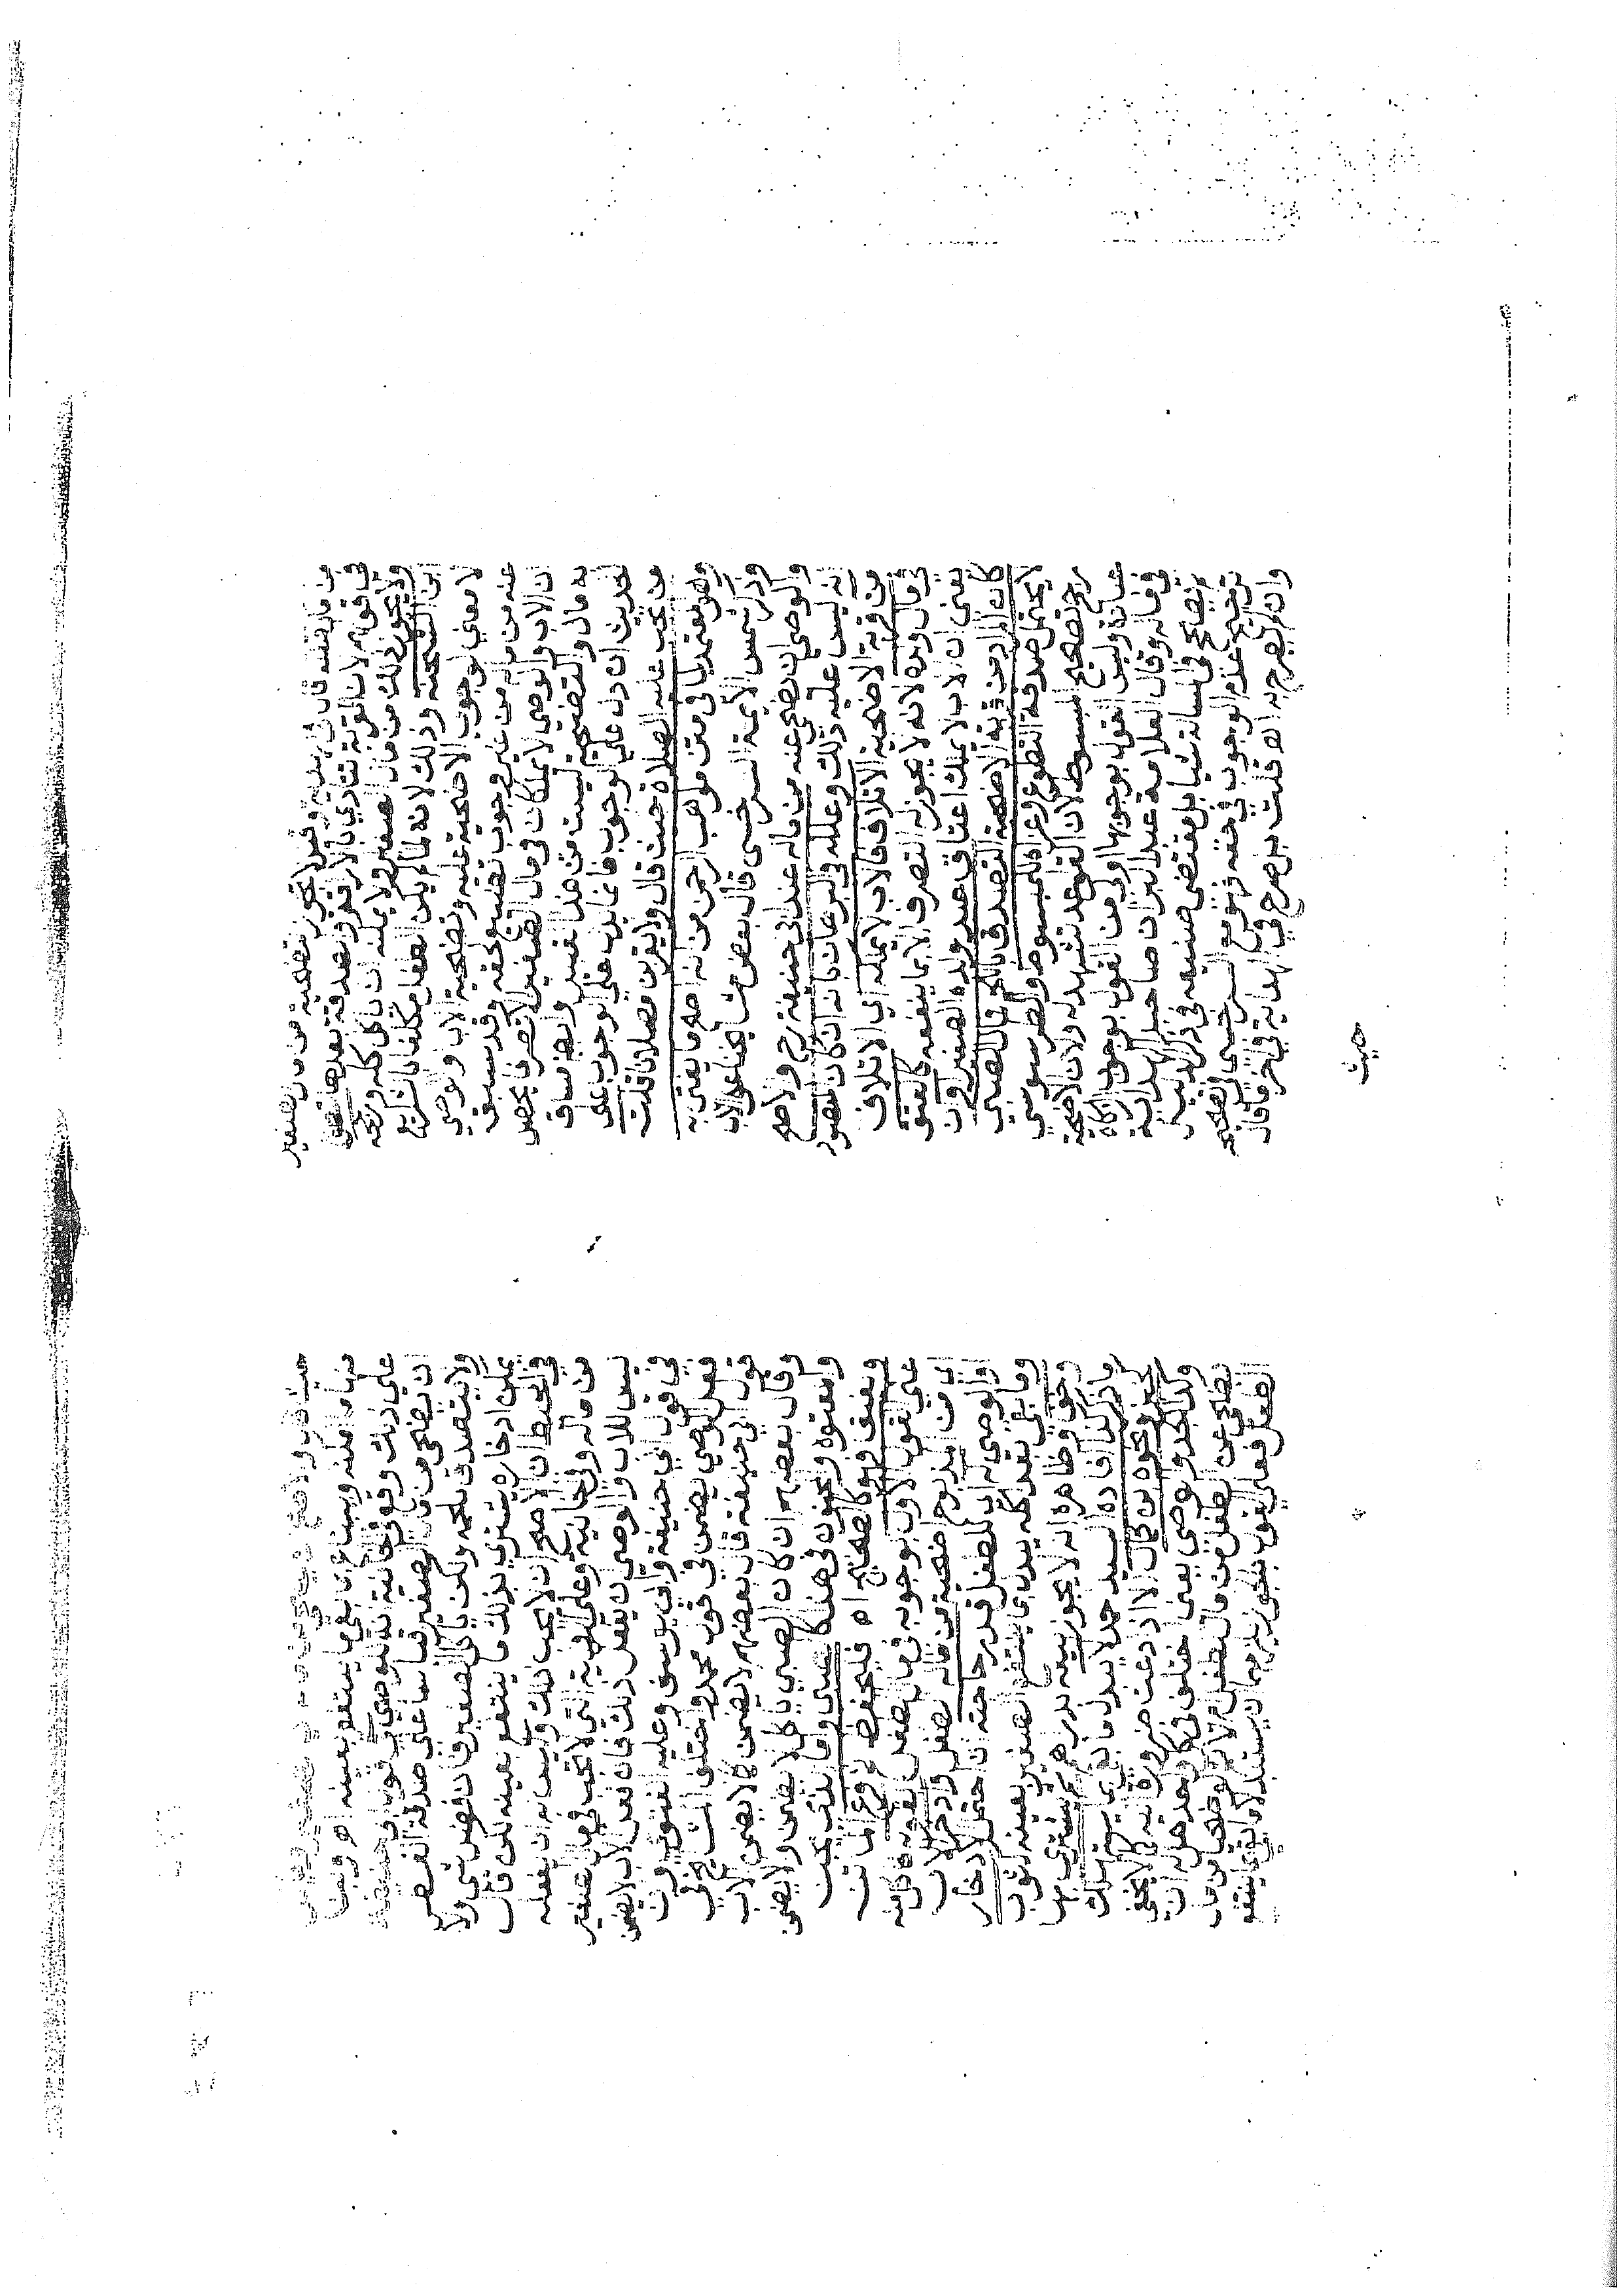 من مال نفسه قال في الهداية وقيل لا تجوز تضحية من مال الصغير
في قولهم لان القربة تتأدي بالاراقة والصدقة بعدها تطوع
ولا يجوز ذلك من مال الصغير ولا يمكنه ان ياكل كله
ابن الشحنة وذلك لانه لما لم يكن الطفل مكلفا
لا معني لوجوب الاضحية عليه وتضحية الاب والوصي
عنه من ماله من غير وجوب تضييع لحقه وقد سبق
ان الاب والوصي لا يملكان في مال الصغير الا تصرفا يخص
به مال والتضحية ليست من هذا القبيل وايضا مساق
الحديث ان دل علي الوجوب فانما يدل علي الوجوب علي
من يجب عليه الصلاة حيث قال ولا يقربن مصلانا قلت
وهو معتمد ما في متن مواهب الرحمن من انه اصح ما يفتي به
وذكر شمس الائمة السرخسي قال بعض مشايخنا علي الاب
والوصي ان يضحي عنه من ماله عند ابي حنيفة رح والاصح
انه ليس عليه ذلك وعلله في البرهان بانه ان كان المقصود
من قربة الاضحية الاتلاف فالاب لا يملكه اي الاتلاف
في مال ولده لانه لا يجوز له التصرف الا بما ينفعه كالعتق
يعني ان الاب لا يملك اعتاق عبد ولده الصغير وان
كان المراد من قربة الاضحية التصدق باللحم فمال الصبي
لا يحتمل صدقة التطوع وعزاه للمبسوط والطرسوسي
رجح تصحيح المبسوط لان القواعد تشهد له ولان الاضحية
عبادة وليس القول بوجوبها اولي من القول بوجوب الزكاة
في ماله وقال العلامة عبد البر ان صاحب الهداية
لم يصحح في المسالة شيا بل مقتضي صنيعه في ذكر الدليل
ترجيح عدم الوجوب في حقه فهو مع السرخسي في التصحيح
وان لم يصرح به اه قلت بل صرح في الهداية في اخر ما قال
حيث
حيث قال والاصح ان يضحي من ماله
منها ما امكنه ويبتاع بما بقي ما ينتفع بعينه اه
علي ذلك وقع في الخانية انه للوصي في قول ابي حنيفة
ان يضحي من مال الصغير قياسا علي صدقة الفطر
ولا يتصدق بلحمه ولكن ياكل الصغير فان فضل شي ولا
يمكن ادخاره يشتري بذلك ما ينتفع بعينه لكن قال
في المحيط ان الاصح ان لا يجب ذلك وليس له ان يفعله
من ماله وفي الخانية وعلي الرواية التي لا تجب في مال الصغير
ليس للاب والوصي ان يفعل ذلك فان فعل الاب لا يضمن
في قول ابي حنيفة وابي يوسف وعليه الفتوي وان
فعل الوصي يضمن في قول محمد واختلف المشايخ في
قول ابي حنيفة قال بعضهم لا يضمن كما لا يضمن الاب
وقال بعضهم ان كان الصبي ياكل لا يضمن والا يضمن
والمعتوه والمجنون في هذا كالصبي واما الذي يجن
ويفيق فهو كالصحيح اه فليحفظ
علي القول الاول بوجوبه في مال الطفل بقوله فاكل منه
اي من المذبوح اضحية من ماله الطفل وادخر الاب
والوصي له اي للطفل قدر حاجته ان احتمل الادخار
وما بقي بعد اكله يبدل بما ينتفع الصغير بعينه كثوب
وخف وظاهره انه لا يجوز بيعه بدراهم ثم يشتري بها
ما ذكر كذا افاده السيد جد لا يبدل ما بقي باستهلاك
كخبز ونحوه بحال الا اذا دعت ضرورة اليه كما لا يخفي
وكذا الجد والوصي يعني اختلف في كل واحد هل له ان
يضحي عن الطفل من مال الطفل ام لا فلو ضحيا من مال
الطفل فعلي القول بالجواز يلزمهما ان يستبدلا ما بقي بما ينتفع